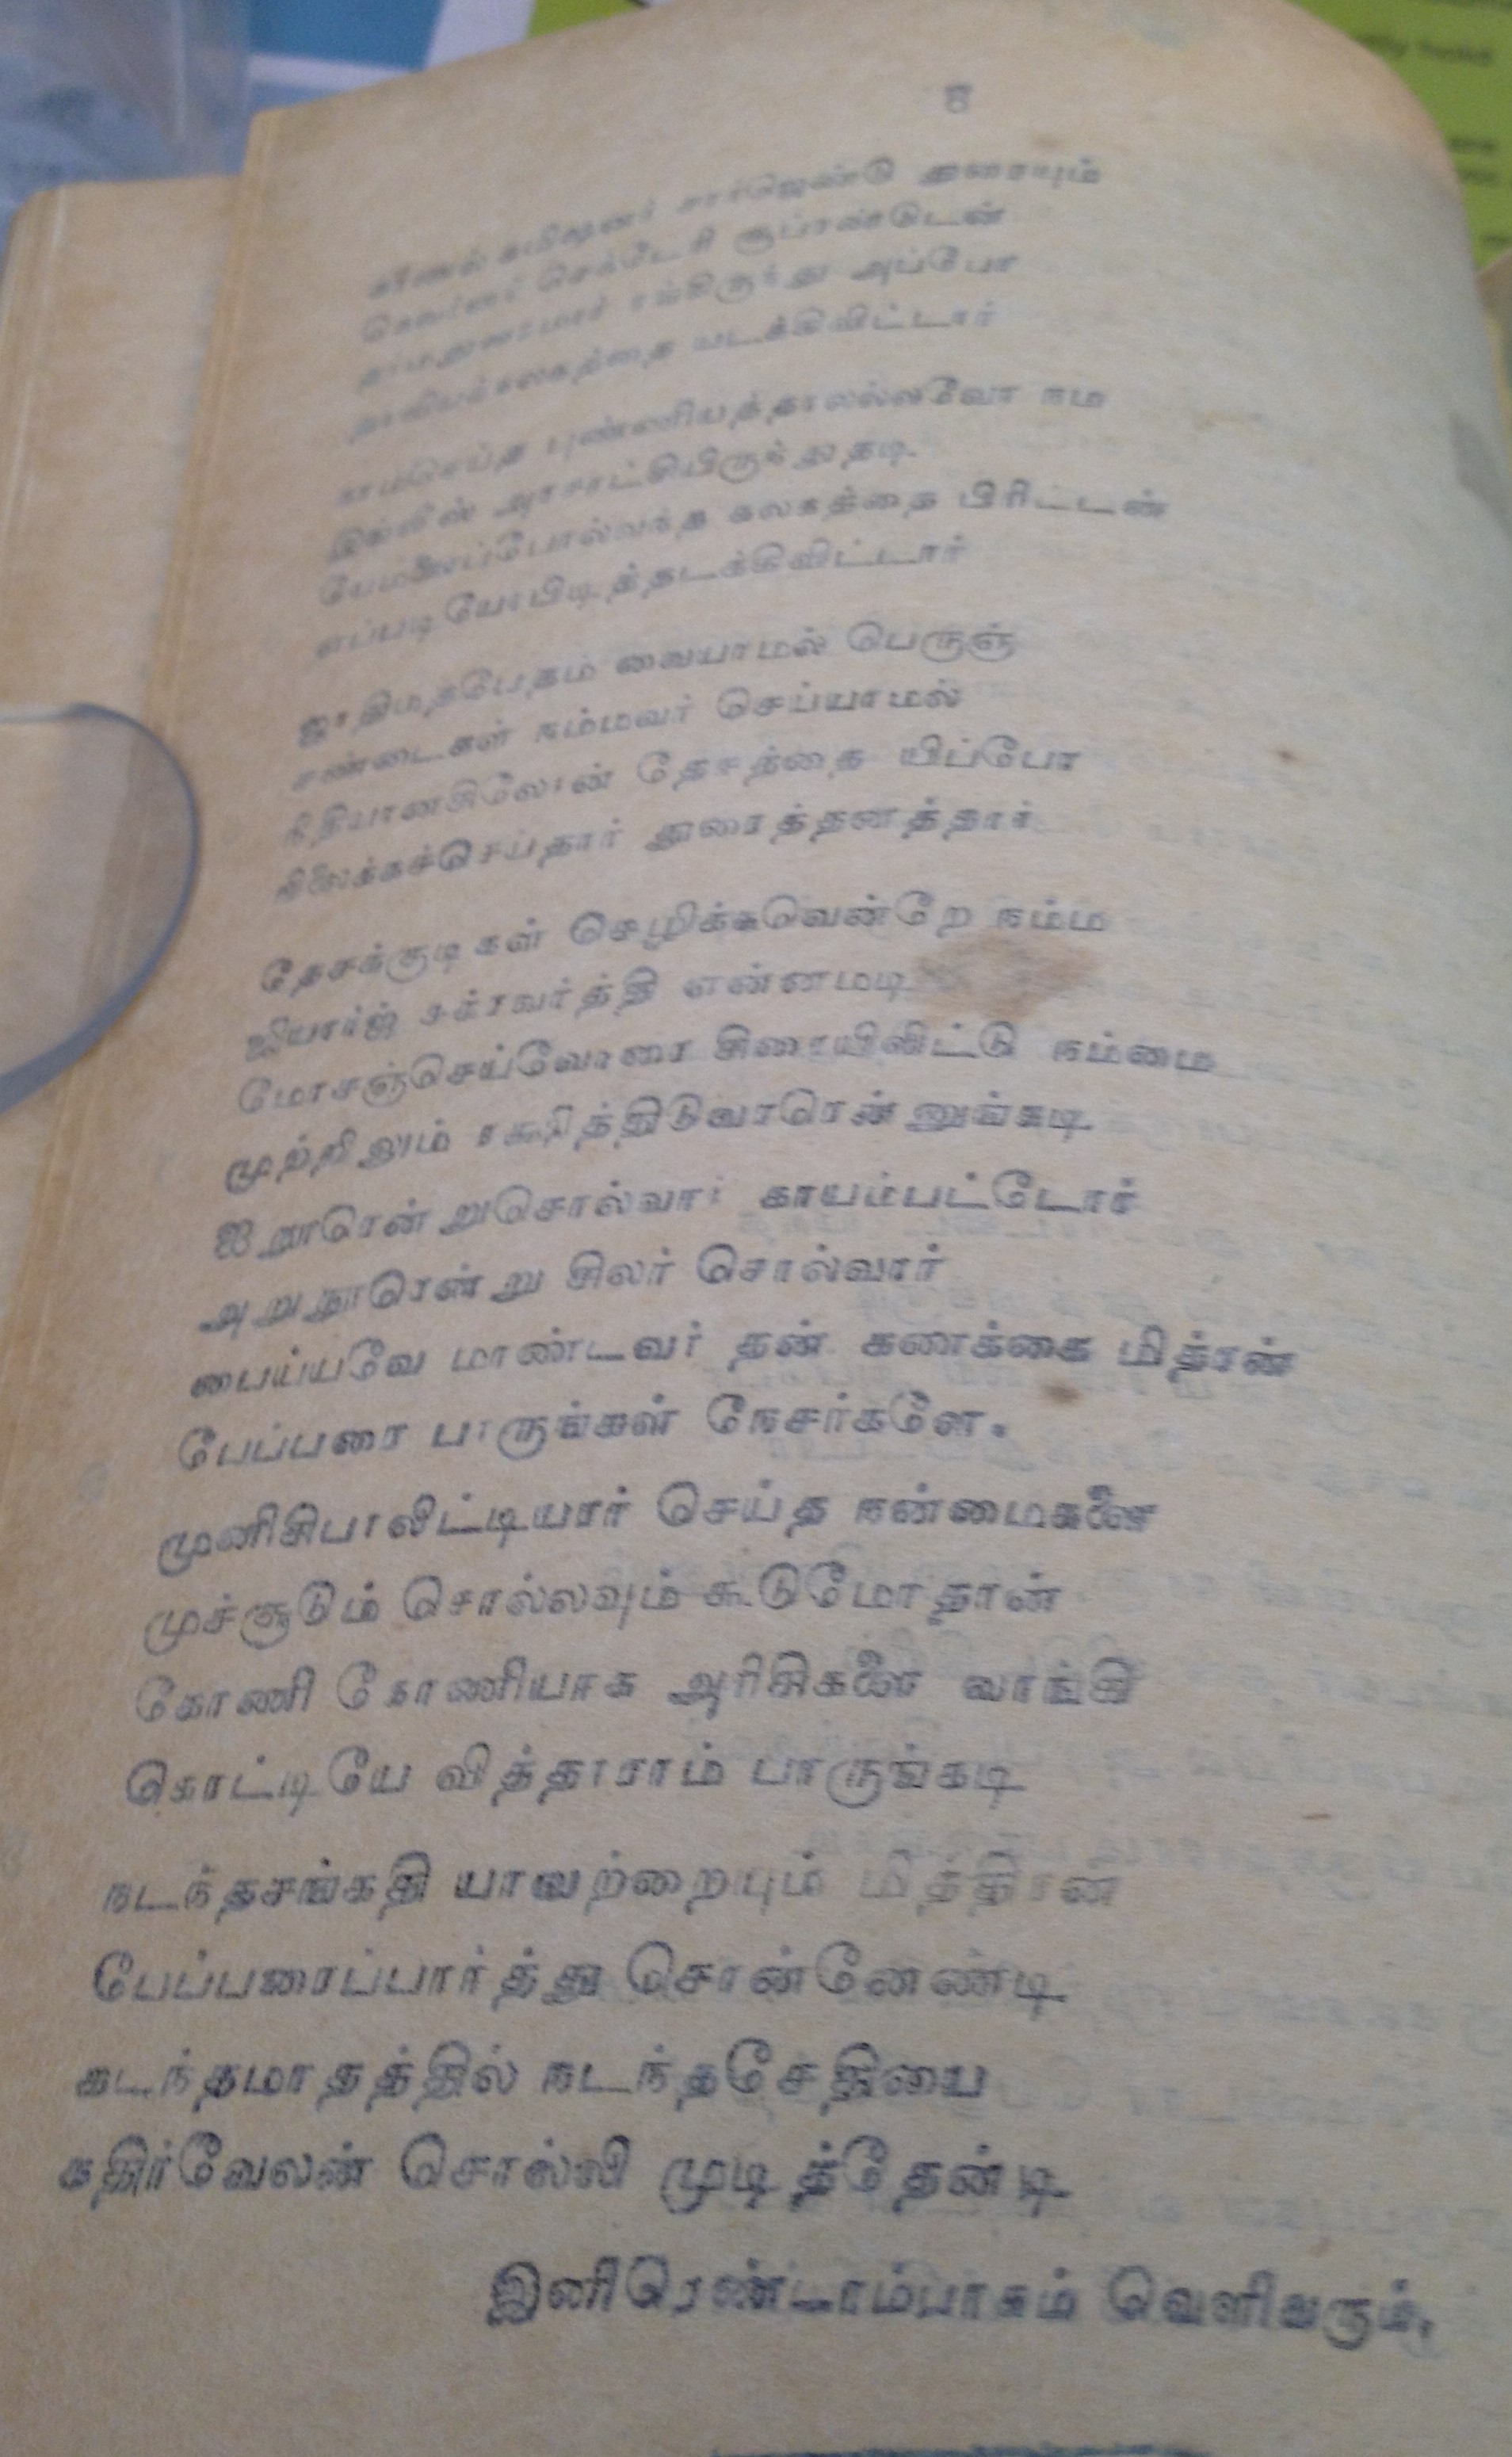 8
சார்ஜெண்டு துரையும்
அப்போ
கலகத்தை யடக்கிவிட்டார்
புண்ணியத்தாலல்லவோ நம
இங்லிஸ் அரசாட்சியிருந்துதடி
கலகத்தை பிரிட்டன்
எப்படியோபிடித்தடக்கிவிட்டார்
ஜாதிமதபேதம் வையாமல் பெருஞ்
சண்டைகள் நம்மவர் செய்யாமல்
நீதியானசிலோன் தேசத்தை யிப்போ
நிலைக்கச்செய்தார் துரைத்தனத்தார்
தேசக்குடிகள் செழிக்கவென்றே நம்ம
ஜியார்ஜ் சக்ரவர்த்தி எண்ணமடி
மோசஞ்செய்வோரை சிறையிலிட்டு நம்மை
முற்றிலும் ரக்ஷித்திடுவாரெண்ணுங்கடி
ஐநூரென்றுசொல்வார் காயம்பட்டோர்
அறுநூரென்று சிலர் சொல்வார்
பைய்யவே மாண்டவர் தன் கணக்கை மித்ரன்
பேப்பரை பாருங்கள் நேசர்களே.
முனிசிபாலிட்டியார் செய்த நன்மைகளை
முச்சூடும் சொல்லவும் கூடுமோதான்
கோணி கோணியாக அரிசிகளை வாங்கி
கொட்டியே வித்தாராம் பாருங்கடி
நடந்தசங்கதி யாவற்றையும் மித்திரன்
பேப்பரைப்பார்த்து சொன்னேண்டி
கடந்தமாதத்தில் நடந்தசேதியை
கதிர்வேலன் சொல்லி முடித்தேன்டி
இனிரெண்டாம்பாகம் வெளிவரும்.